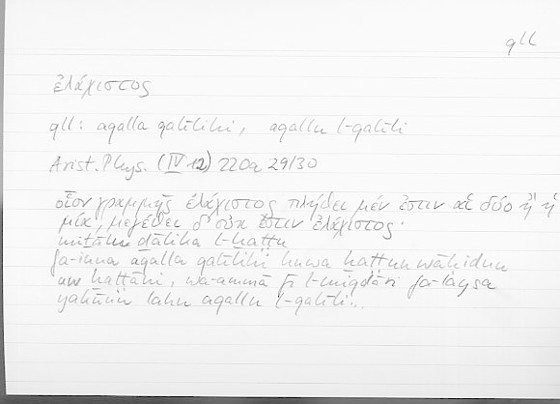 qll
ἐλάχιστος
qll: aqallu qalīlihi, aqallu l-qalīli
Arist. Phys. (IV 12) 220a 29/30
οἷον γραμμῆς ἐλάχιστος πλήθει μέν ἐστιν αἱ δύο ἢ ἡ
μία, μεγέθει δ' οὐκ ἔστιν ἐλάχιστος·
miṯālu ḏālika l-ḫaṭṭu
fa-inna aqalla qalīlihi huwa ḫaṭṭun wāḥidun
au ḫaṭṭāni, wa-ammā fī l-miqdāri fa-laysa
yakūnu lahu aqallu l-qalīli...